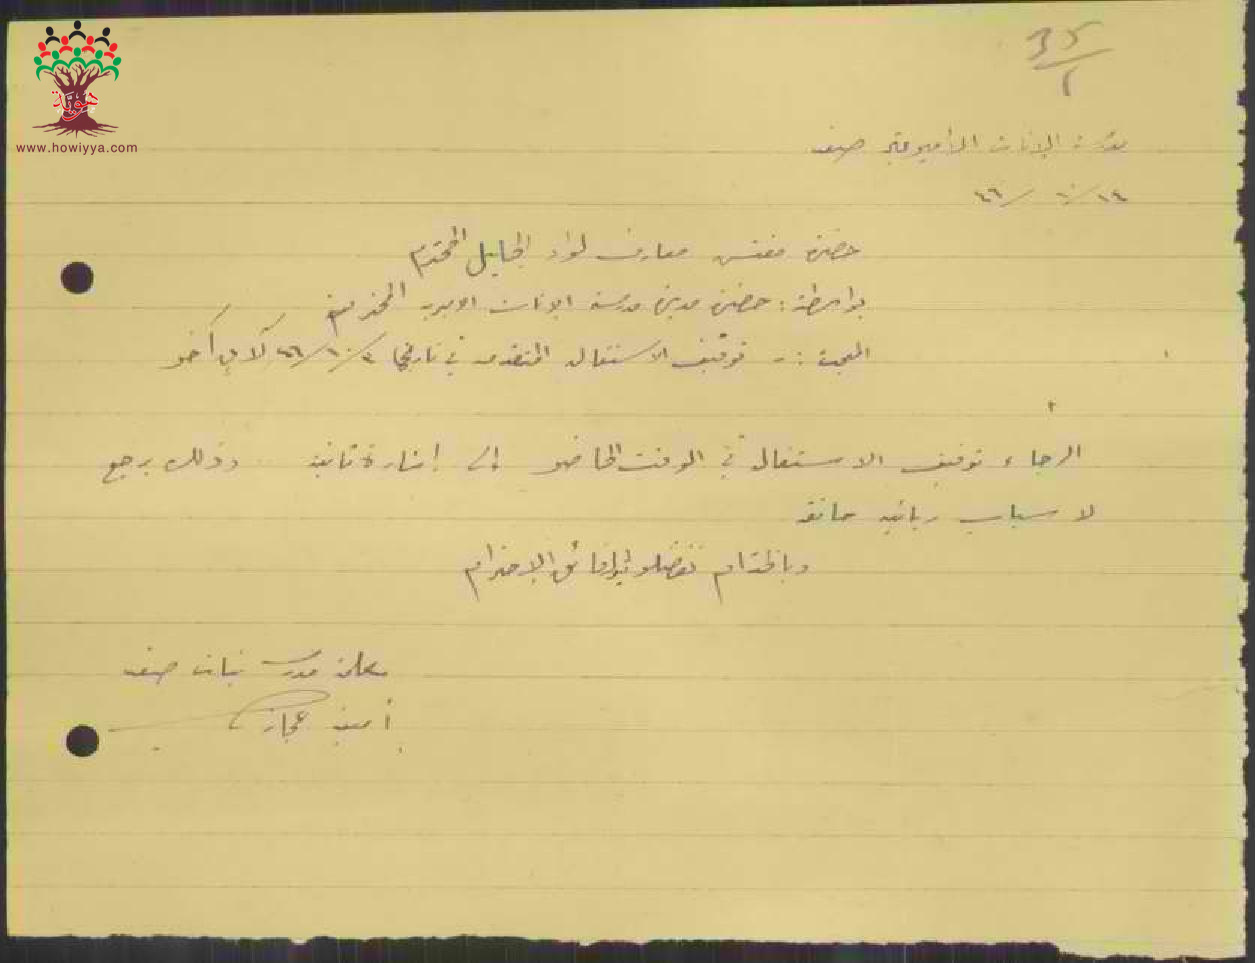 هوية
www.howiyya.com
35/1
مدرسة الإناث الأميرية صفد
١٤/١٠/٤٦
حضرة مفتش معارف لواء الجليل المحترم
بواسطة: حضرة مديرة مدرسة الاناث الاميرية المحترمة
المبحث :- توقيف الاستقالة المتقدمة في تاريخ ٤/١٠/٤٦ لأجل آخر
الرجاء توقيف الاستقالة في الوقت الحاضر إلى إشارة ثانية وذلك يرجع
لاسباب
وبالختام تفضلوا بقبول فائق الاحترام
معلمة مدرسة بنات صفد
أمينة